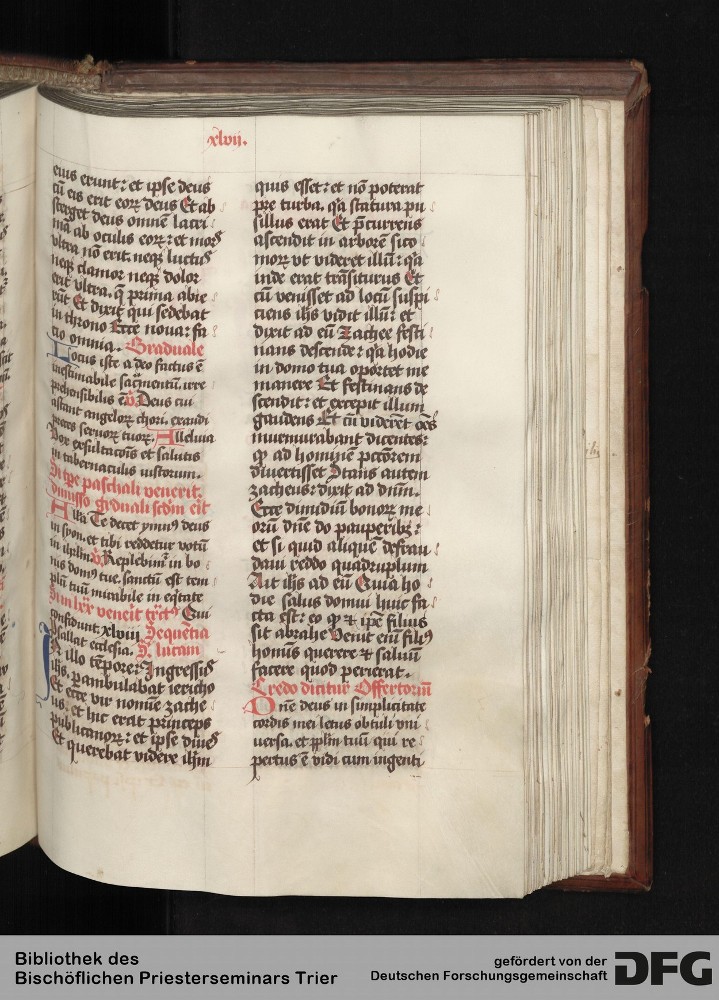 xlvij.
eius erunt: et ipse deus
cū eis erit eoꝝ deus Et ab
sterget deus omnē lacri
mā ab oculis eoꝝ: et mors
vltra nō erit. neqꝫ luctꝰ
neqꝫ clamor neqꝫ dolor
erit vltra. q̄ prima abie
rūt Et dixit qui sedebat
in throno Ecce noua: fa
cio omnia. Graduale
Locus iste a deo factus ē
inestimabile sacr̄mentū. irre
prehensibilis ē ℣ Deus cui
astant angeloꝝ chori. exaudi
preces seruoꝝ tuoꝝ. Alleluia
Vox exsultacōis et salutis
in tabernaculis iustorum.
Si tꝑe paschali venerit.
dimisso gͣduali scdm̄ erit
Alla Te decet ymnꝰ deus
in syon. et tibi reddetur votū
in ihrlm ℣ Replebimͬ in bo
nis domꝰ tue. sanctū est tem
plū tuū mirabile in eq̄tate
Si in lxx veneīt trctꝰ Qui
confidunt. xlviij Sequētia
Psallat ecclesia. S. lucam
In illo tēpore: Ingressus
ihs. ꝑambulabat iericho
Et ecce vir nomīe zache
us: et hic erat princeps
publicanoꝝ: et ipse diues
Et querebat videre ihm̄
quis esset: et nō poterat
pre turba. qͥa statura pu
sillus erat Et p̄currens
ascendit in arborē sico
moꝝ vt videret illū: qͥa
inde erat trāsiturus Et
cū venisset ad locū suspi
ciens ihs vidit illū: et
dixit ad eū Zachee festi
nans descende: qͥa hodie
in domo tua oportet me
manere Et festinans de
scendit: et excepit illum
gaudens Et cū viderēt oēs
murmurabant dicentes:
ꝙ ad hominē pctōrem
diuertisset Stans autem
zacheus: dixit ad dn̄m.
Ecce dimidiū bonoꝝ me
orū dn̄e do pauperibꝫ:
et si quid aliquē defrau
daui reddo quadruplum
Ait ihs ad eū Quia ho
die salus domui huic fa
cta est: eo ꝙ ⁊ ip̄e filius
sit abrahe Uenit enī filiꝰ
homīs querere ⁊ saluū
facere quod perierat.
Credo dicitur Offertoriū
Dn̄e deus in simplicitate
cordis mei letus obtuli vni
uersa. et pp̄lm tuū qui re
pertus ē vidi cum ingenti
Bibliothek des
Bischöflichen Priesterseminars Trier
gefördert von der
Deutschen Forschungsgemeinschaft
DFG